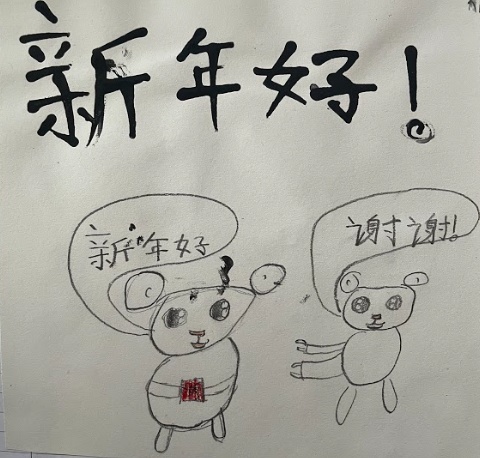 新年好！
新年好
谢谢！